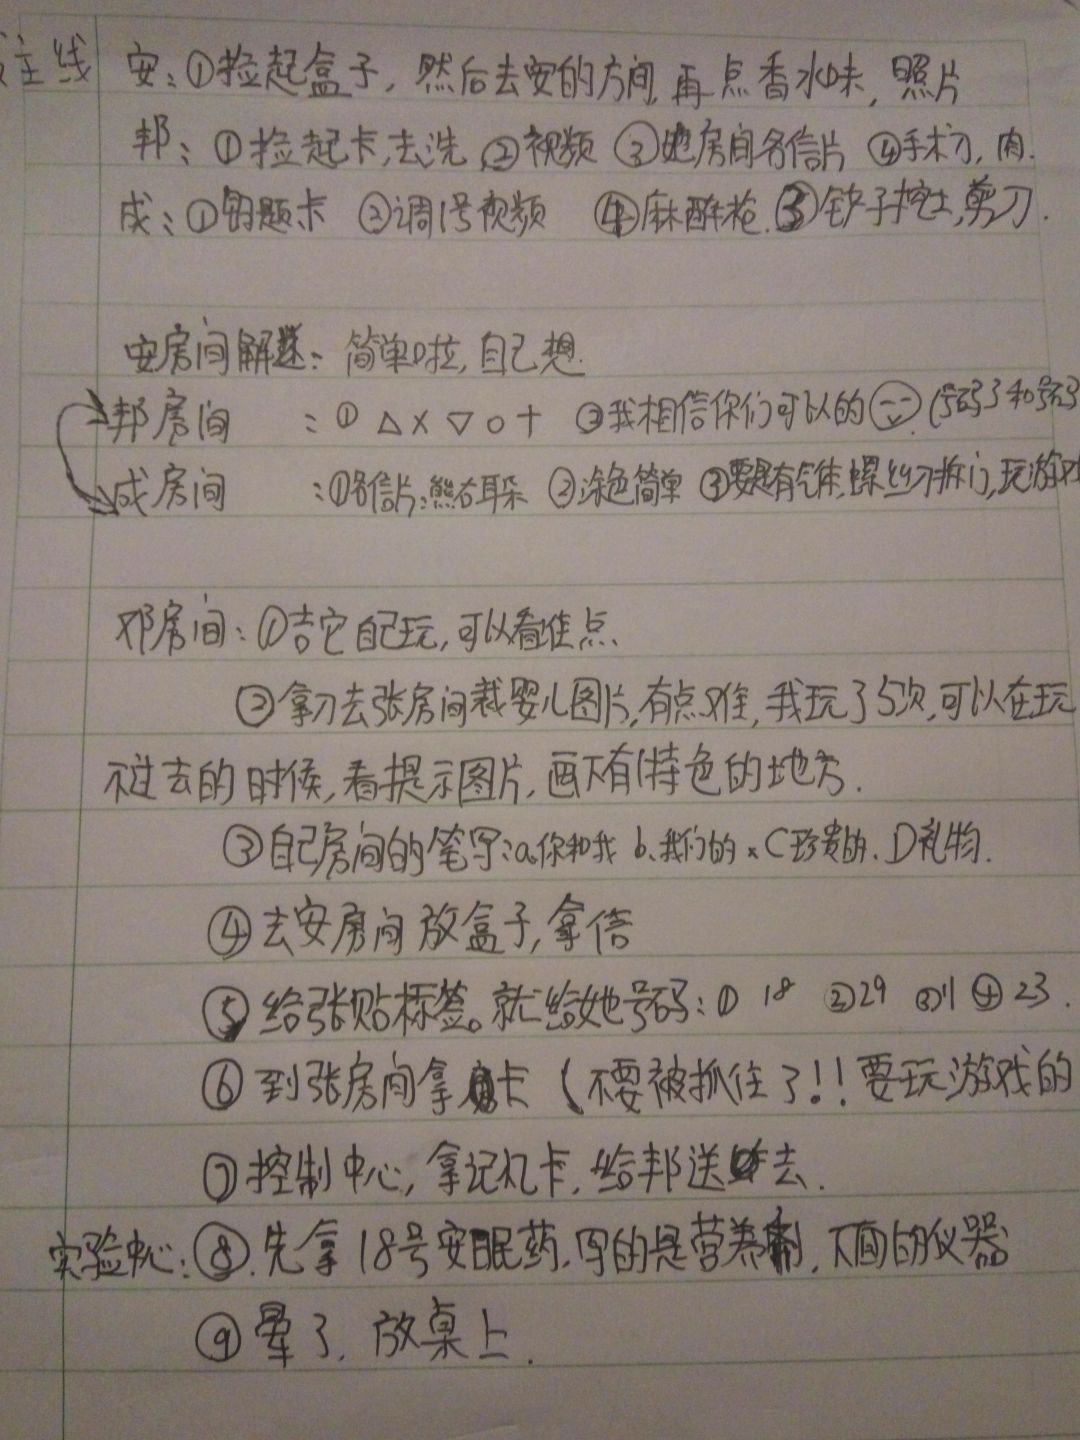 主线 安：①捡起盒子，然后去安的方间，再点香水味，照片
邦：①捡起卡，去洗 ②视频 ③她房间名信片 ④手术刀，肉.
成：①钥题卡 ②调1号视频 ④麻醉枪.③铲子挖土，剪刀.
安房间解谜：简单啦，自己想.
邦房间：①△X▽○十 ②我相信你们可以的(号码3和号码
成房间：①名信片：熊右耳朵 ②涂色简单 ③要是有气体，螺丝刀拆门，玩游戏
邓房间：①吉它自己玩，可以看准点.
②拿刀去张房间裁婴儿图片，有点难，我玩了5次，可以在玩
不过去的时候，看提示图片，画下有特色的地方.
③自己房间的笔写：a.你和我 b.我们的 C珍贵的. D礼物.
④去安房间放盒子，拿信
⑤给张贴标签。就给她号码：① 18 ②29 ③11 ④23.
⑥到张房间拿卡(不要被抓住了!!要玩游戏的
⑦控制中心，拿记机卡，给邦送去.
实验中心：⑧.先拿18号安眠药，写的是营养剂，下面的仪器
⑨晕了.放桌上.